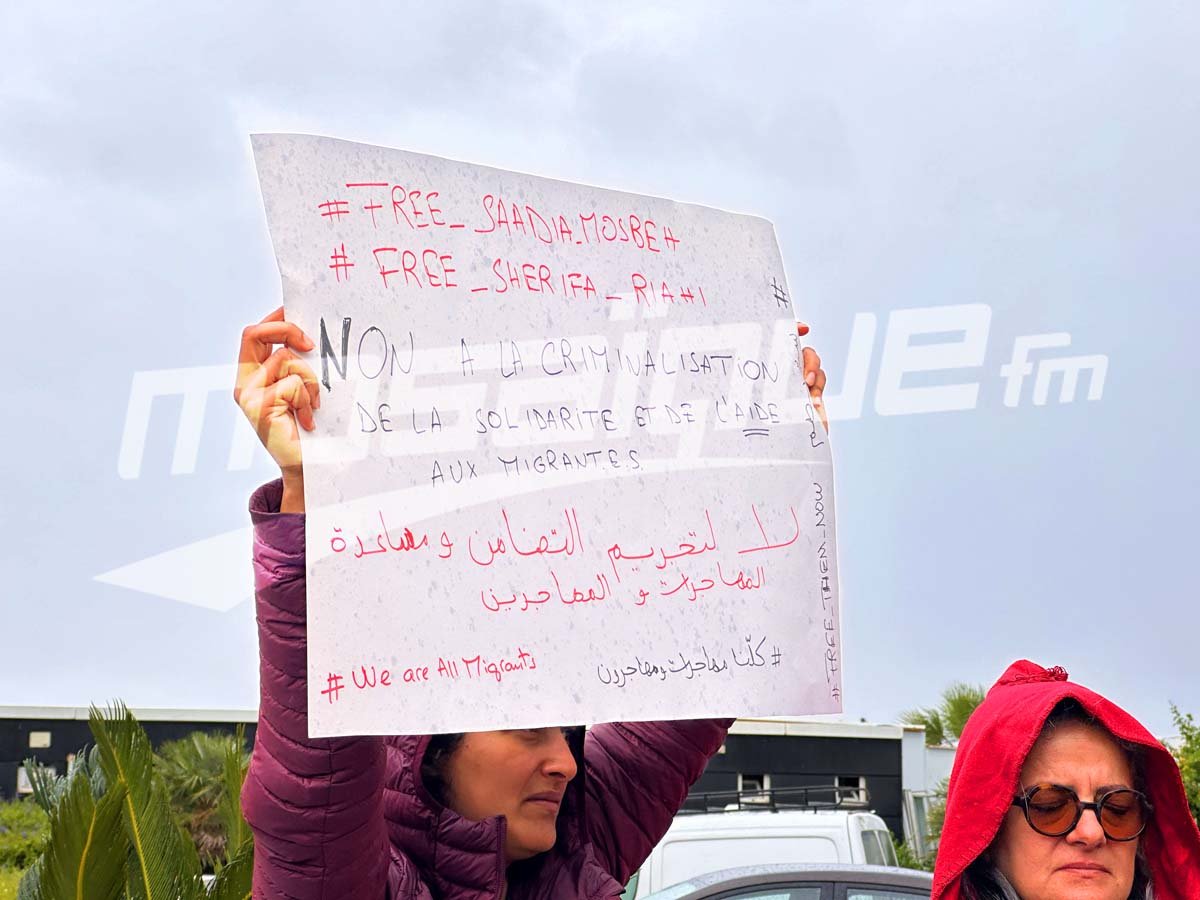 #FREE_SAADIA_MOSBEH
#FREE_SHERIFA_RIAHI
NON A LA CRIMINALISATION
DE LA SOLIDARITE ET DE L'AIDE
AUX MIGRANT.E.S.
لا لتجريم التضامن ومساعدة
المهاجرات و المهاجرين
#We are All Migrants
#كلّنا مهاجرات ومهاجرون
#FREE_THEM_NOW
mosaïque fm